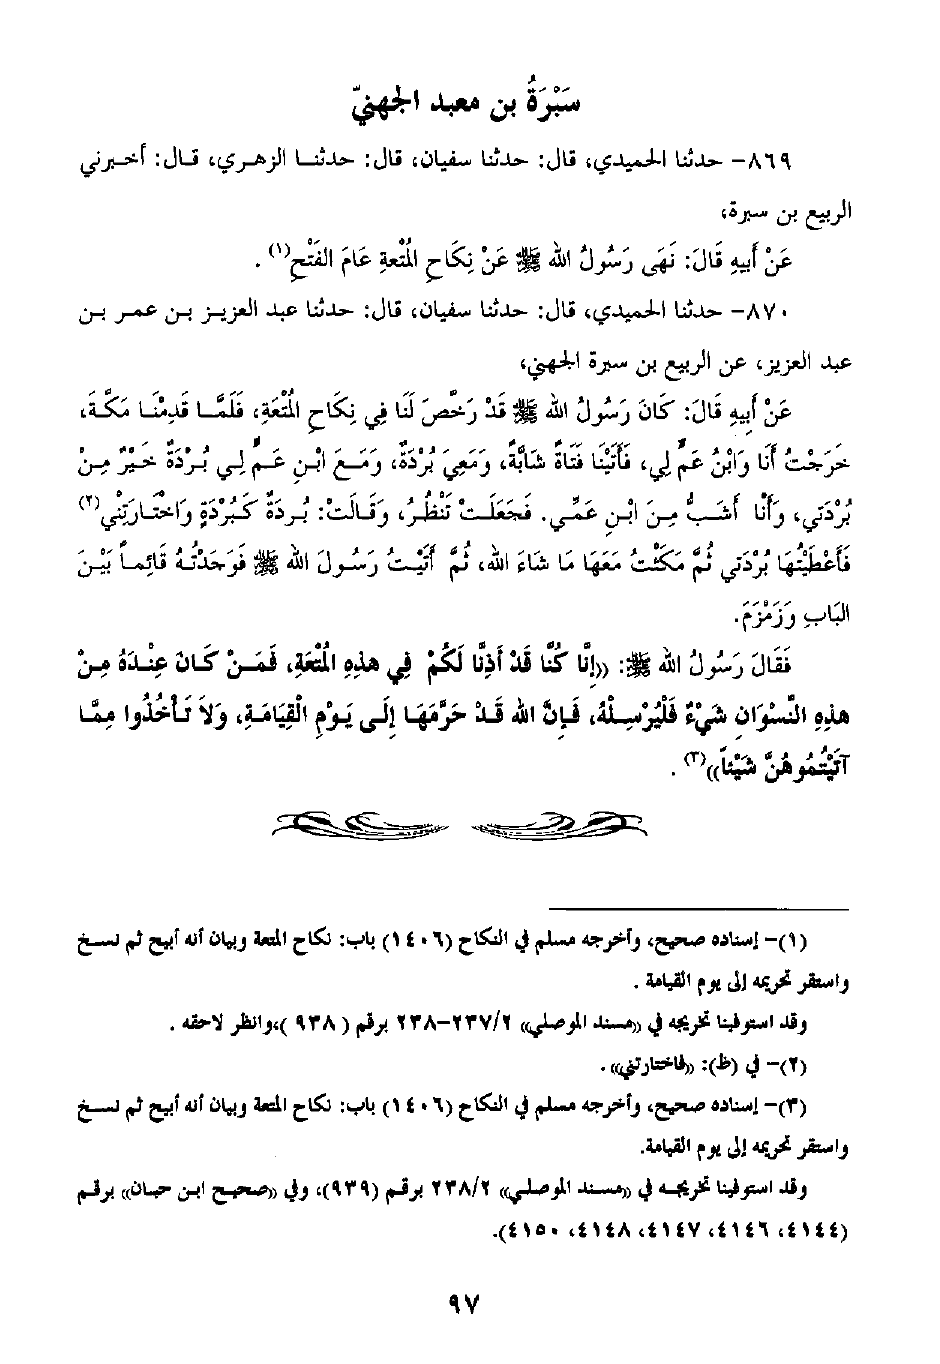 سَبْرَةُ بن معبد الجهنيّ
٨٦٩- حدثنا الحميدي، قال: حدثنا سفيان، قال: حدثنا الزهري، قال: أخبرني
الربيع بن سبرة،
عَنْ أَبِيهِ قَالَ: نَهَى رَسُولُ الله ﷺ عَنْ نِكَاحِ الْمُتْعَةِ عَامَ الفَتْحِ(١) .
٨٧٠- حدثنا الحميدي، قال: حدثنا سفيان، قال: حدثنا عبد العزيز بن عمر بن
عبد العزيز، عن الربيع بن سبرة الجهني،
عَنْ أَبِيهِ قَالَ: كَانَ رَسُولُ الله ﷺ قَدْ رَخَّصَ لَنَا فِي نِكَاحِ الْمُتْعَةِ، فَلَمَّا قَدِمْنَا مَكَّةَ،
خَرَجْتُ أَنَا وَابْنُ عَمٍّ لِي، فَأَتَيْنَا فَتَاةً شَابَّةً، وَمَعِيَ بُرْدَةٌ، وَمَعَ ابْنِ عَمٍّ لِي بُرْدَةٌ خَيْرٌ مِنْ
بُرْدَتِي، وَأَنَا أَشَبُّ مِنَ ابْنِ عَمِّي. فَجَعَلَتْ تَنْظُرُ، وَقَالَتْ: بُردَةٌ كَبُرْدَةٍ وَاخْتَارَتْنِي(٢)
فَأَعْطَيْتُهَا بُرْدَتِي ثُمَّ مَكَثْتُ مَعَهَا مَا شَاءَ الله، ثُمَّ أَتَيْتُ رَسُولَ الله ﷺ فَوَجَدْتُهُ قَائِماً بَيْنَ
البَابِ وَزَمْزَمَ.
فَقَالَ رَسُولُ الله ﷺ: ((إِنَّا كُنَّا قَدْ أَذِنَّا لَكُمْ فِي هذِهِ الْمُتْعَةِ، فَمَنْ كَانَ عِنْدَهُ مِنْ
هذِهِ النِّسْوَانِ شَيْءٌ فَلْيُرْسِلْهُ، فَإِنَّ الله قَدْ حَرَّمَهَا إِلَى يَوْمِ الْقِيَامَةِ، وَلاَ تَأْخُذُوا مِمَّا
آتَيْتُمُوهُنَّ شَيْئاً))(٣) .
(١)- إسناده صحيح، وأخرجه مسلم في النكاح (١٤٠٦) باب: نكاح المتعة وبيان أنه أبيح ثم نسخ
واستقر تحريمه إلى يوم القيامة .
وقد استوفينا تخريجه في ((مسند الموصلي)) ٢٣٧/٢-٢٣٨ برقم ( ٩٣٨ )،وانظر لاحقه .
(٢)- في (ظ): ((فاختارتني)) .
(٣)- إسناده صحيح، وأخرجه مسلم في النكاح (١٤٠٦) باب: نكاح المتعة وبيان أنه أبيح ثم نسخ
واستقر تحريمه إلى يوم القيامة.
وقد استوفينا تخريجه في ((مسند الموصلي)) ٢٣٨/٢ برقم (٩٣٩)، وفي ((صحيح ابن حبان)) برقم
(٤١٤٤، ٤١٤٦، ٤١٤٧، ٤١٤٨، ٤١٥٠).
٩٧